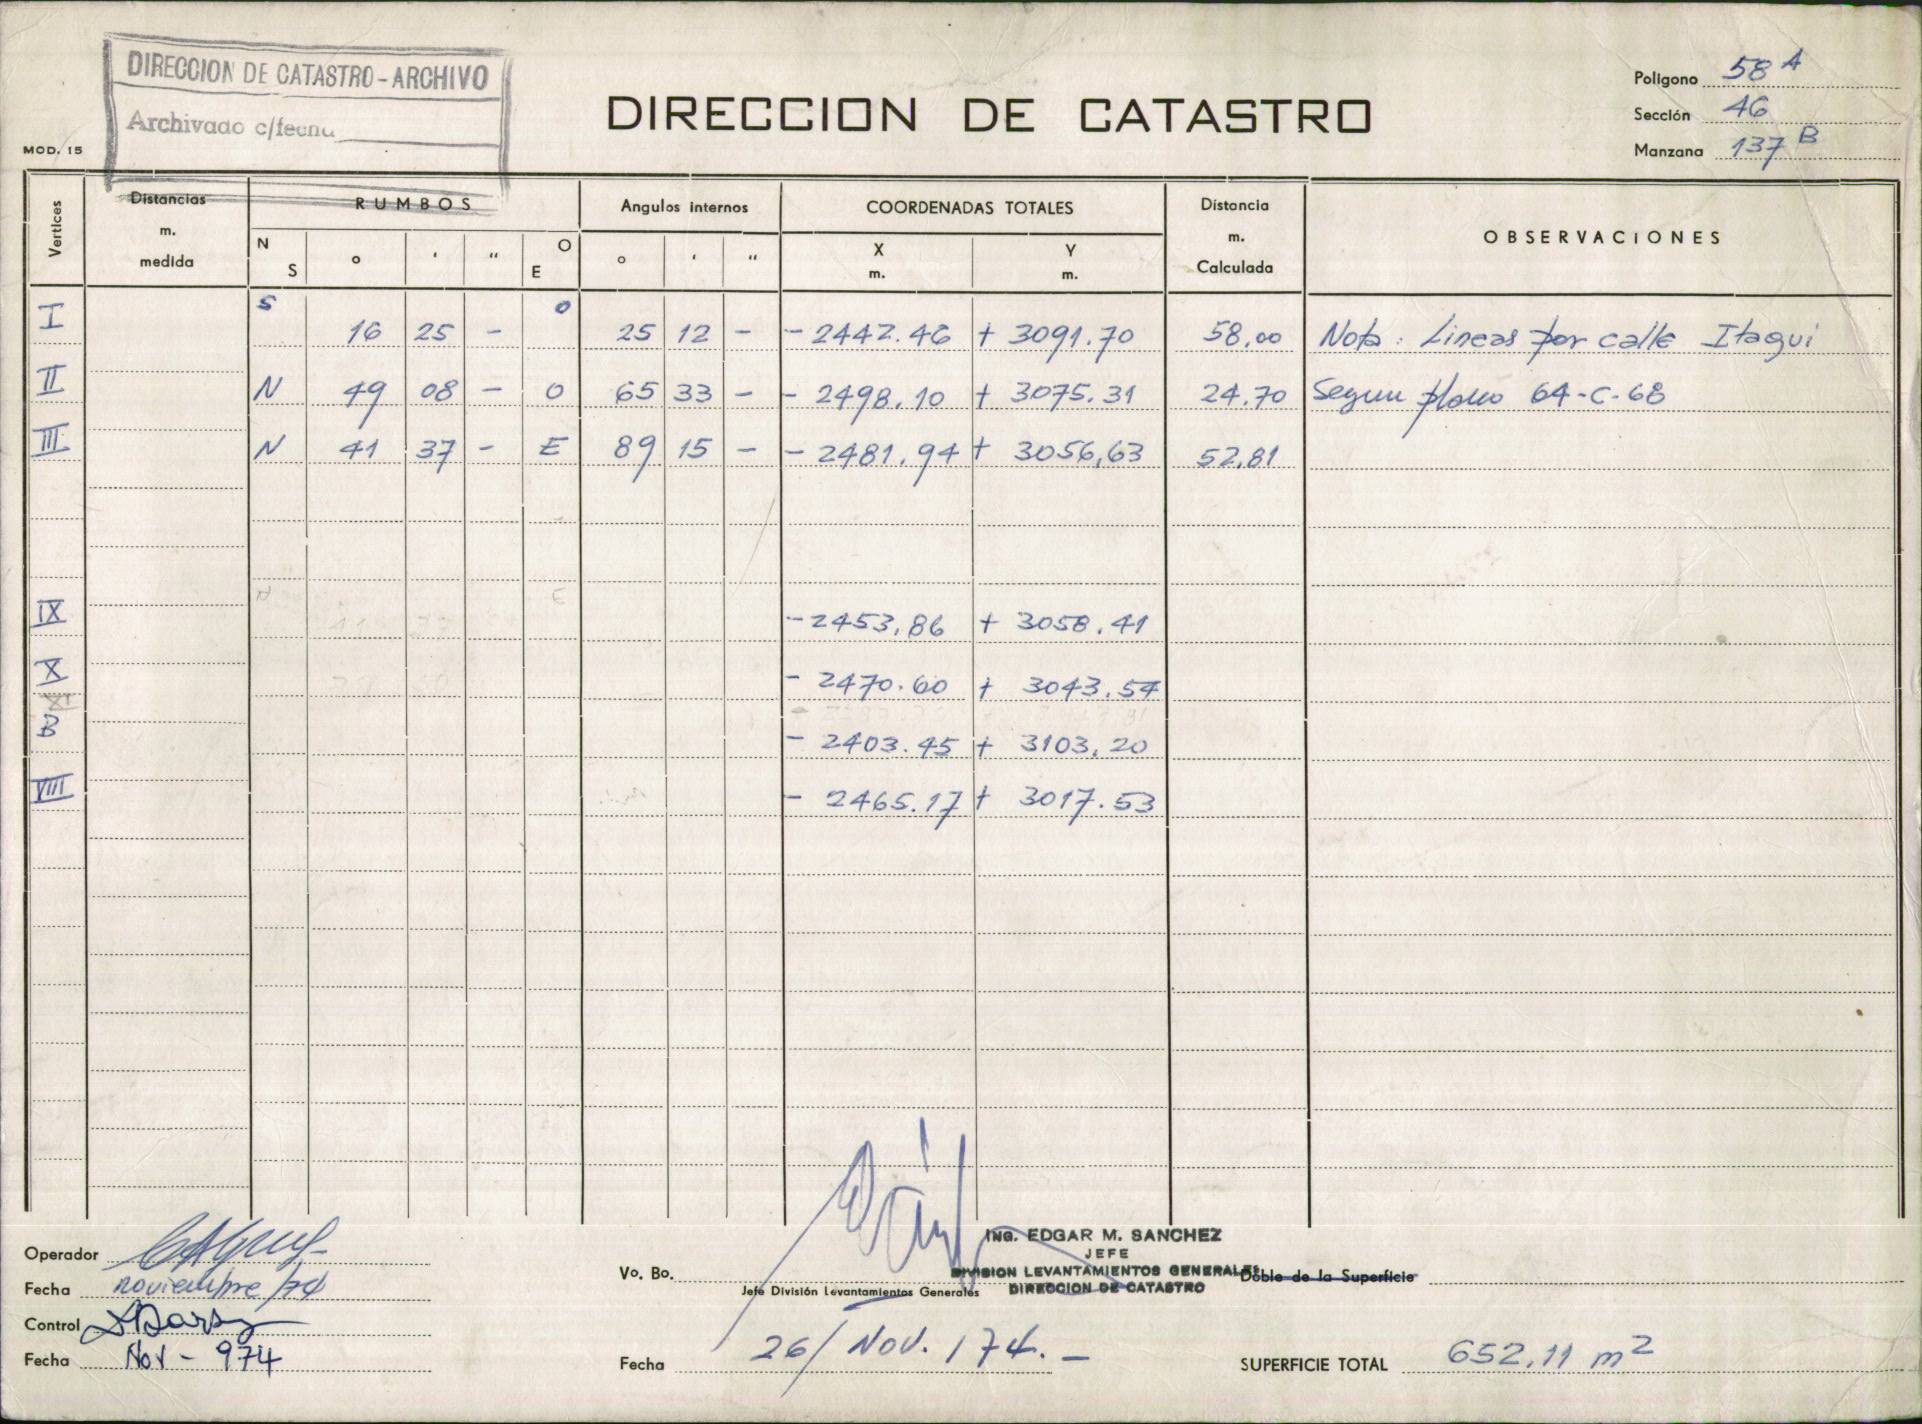 DIRECCION DE CATASTRO - ARCHIVO
Archivado c/fecha
MOD. 15
DIRECCION DE CATASTRO
Poligono 58 A
Sección 46
Manzana 137 B
Vertices Distancias m. medida RUMBOS Angulos internos COORDENADAS TOTALES Distancia m. Calculada OBSERVACIONES
N S o ' " O E o ' " X m. Y m.
I S 16 25 - O 25 12 - - 2442.46 + 3091.70 58,00 Nota: Lineas por calle Itagui
II N 49 08 - O 65 33 - - 2498.10 + 3075.31 24.70 Segun plano 64-C-68
III N 41 37 - E 89 15 - - 2481.94 + 3056,63 52,81
IX - 2453,86 + 3058.41
X - 2470.60 + 3043.54
XI
B - 2403.45 + 3103,20
VIII - 2465.17 + 3017.53
Operador
Fecha noviembre/74
Control
Fecha Nov - 974
Vo. Bo.
Jefe División Levantamientos Generales
ING. EDGAR M. SANCHEZ
JEFE
DIVISION LEVANTAMIENTOS GENERALES
DIRECCION DE CATASTRO
Fecha 26/ NOV. / 74. -
Doble de la Superficie
SUPERFICIE TOTAL 652,11 m2